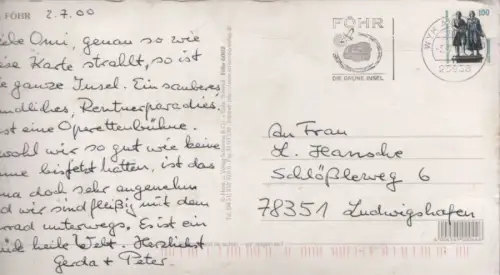 FÖHR 2.7.00
Liebe Omi, genau so wie
diese Karte strahlt, so ist
die ganze Insel. Ein sauberes
freundliches, Rentnerparadies
ist eine Operettenbühne.
obwohl wir so gut wie keine
Sonne bisjetzt hatten, ist das
Klima doch sehr angenehm
und wir sind fleißig mit dem
Fahrrad unterwegs. Es ist ein
Stück heile Welt. Herzlichst
Gerda + Peter
FÖHR
DIE GRÜNE INSEL
WYK
25938
100
An Frau
Schlößleweg 6
78351 Ludwigshafen